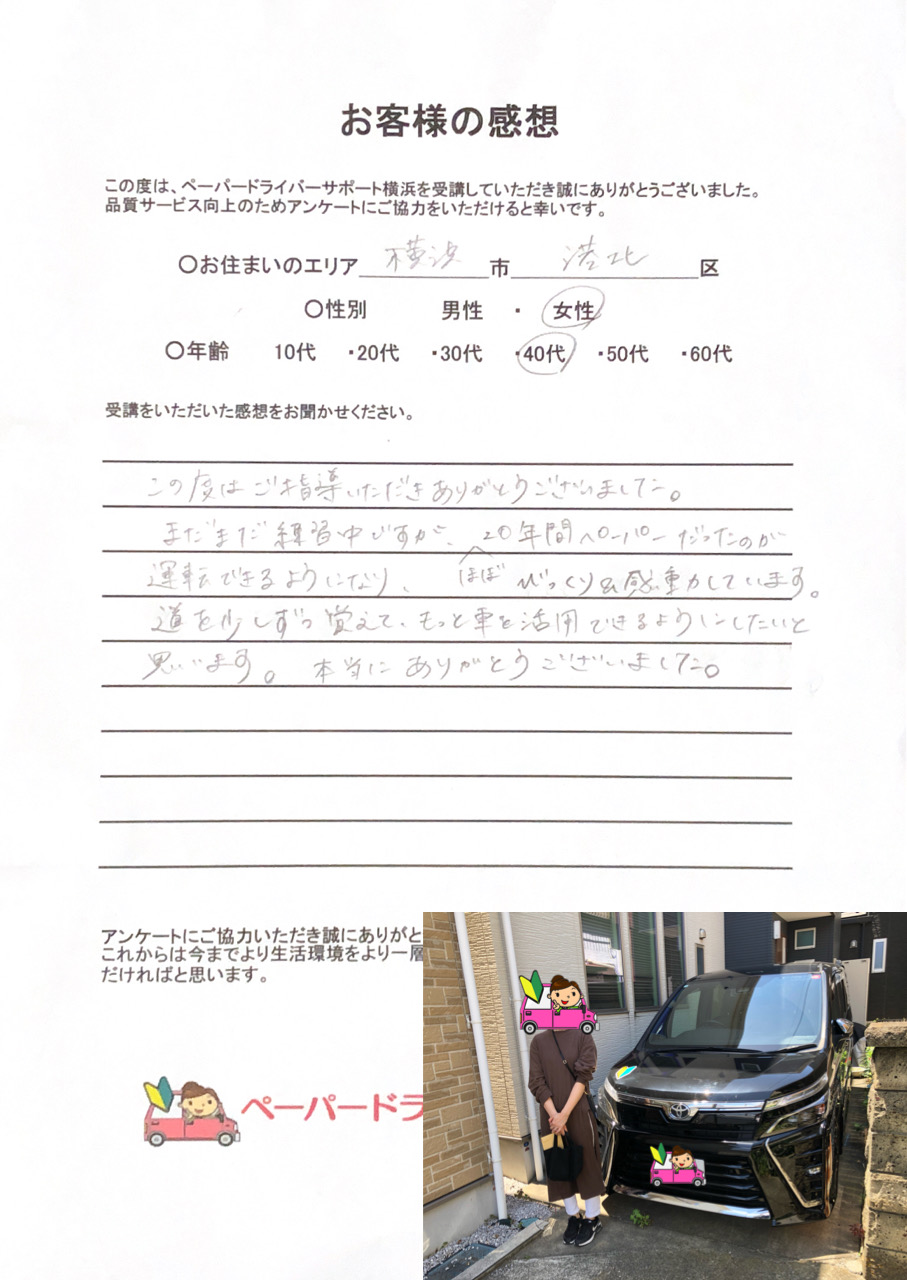 お客様の感想
この度は、ペーパードライバーサポート横浜を受講していただき誠にありがとうございました。
品質サービス向上のためアンケートにご協力をいただけると幸いです。
〇お住まいのエリア 横浜 市 港北 区
〇性別 男性 ・ 女性
〇年齢 10代 ・20代 ・30代 ・40代 ・50代 ・60代
受講をいただいた感想をお聞かせください。
この度はご指導いただきありがとうございました。
まだまだ練習中ですが、20年間ペーパーだったのが
運転できるようになり、ほぼ びっくり&感動しています。
道を少しずつ覚えて、もっと車を活用できるようにしたいと
思います。本当にありがとうございました。
アンケートにご協力いただき誠にありがと
これからは今までより生活環境をより一層
だければと思います。
ペーパードラ